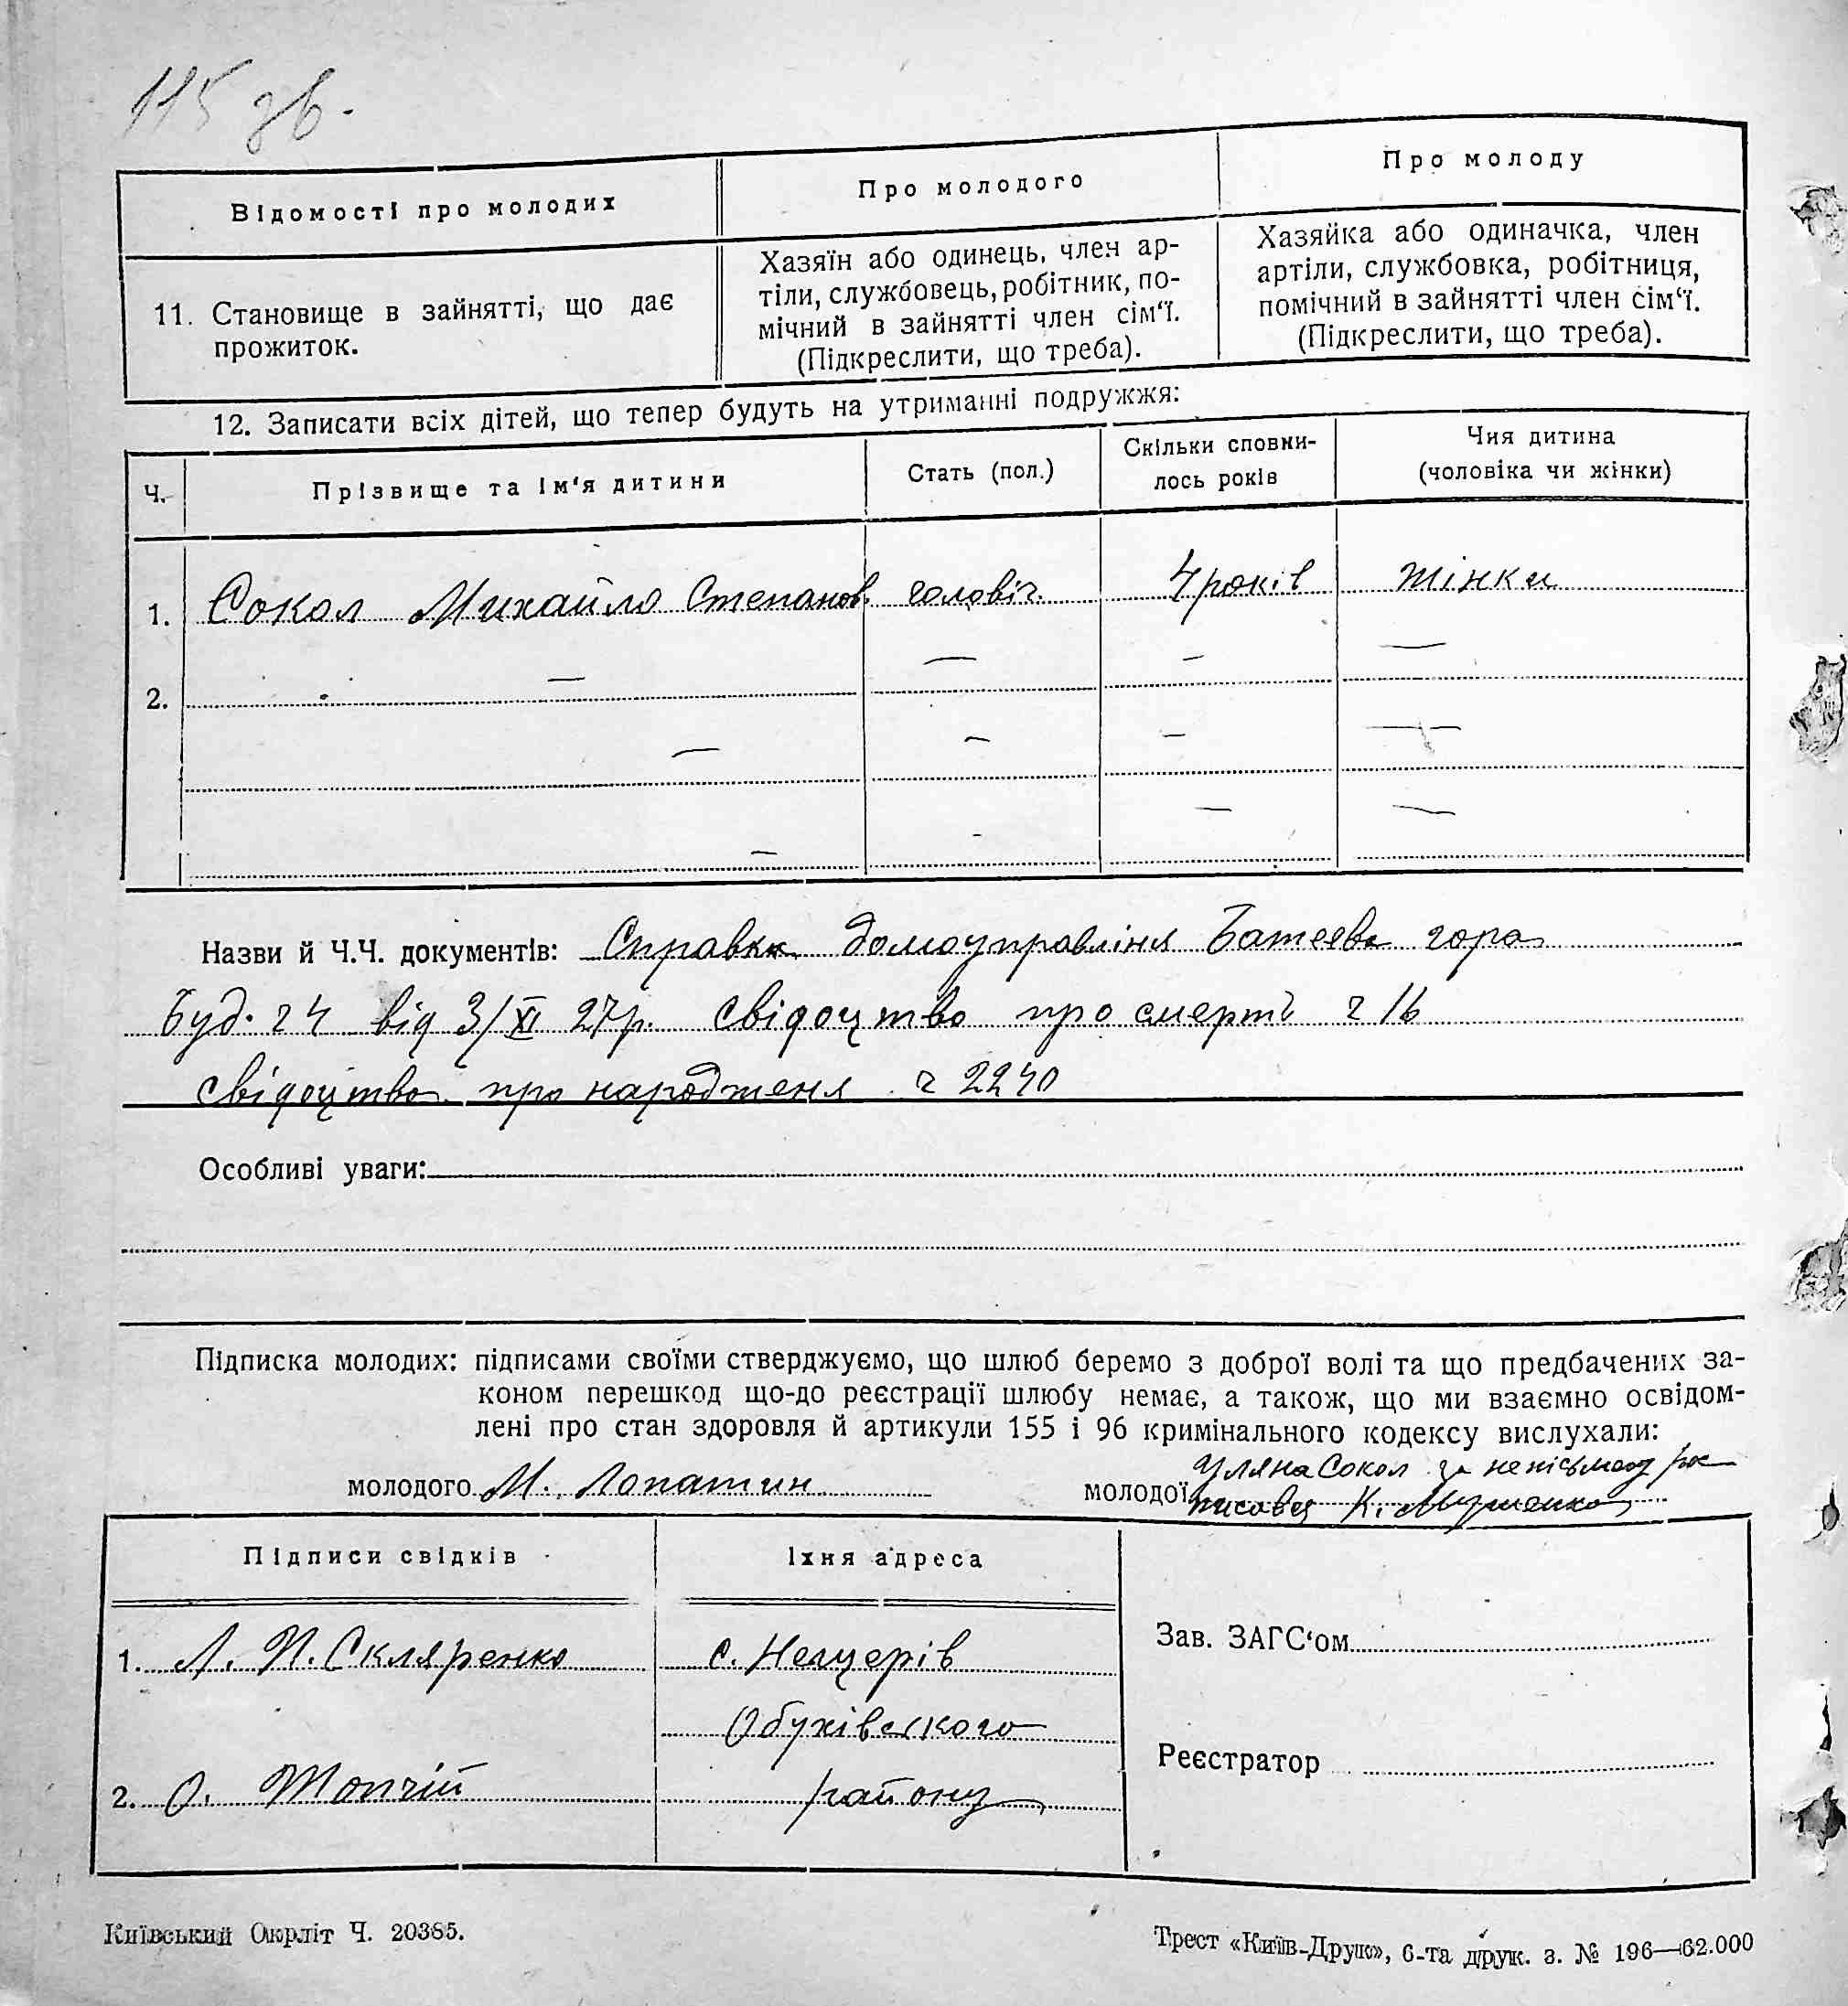 115 зв.
Відомості про молодих
Про молодого
Про молоду
11. Становище в зайнятті, що дає
прожиток.
Хазяїн або одинець, член ар-
тіли, службовець, робітник, по-
мічний в зайнятті член сім'ї.
(Підкреслити, що треба).
Хазяйка або одиначка, член
артіли, службовка, робітниця,
помічний в зайнятті член сім'ї.
(Підкреслити, що треба).
12. Записати всіх дітей, що тепер будуть на утриманні подружжя:
Ч.
Прізвище та ім'я дитини
Стать (пол.)
Скільки сповни-
лось років
Чия дитина
(чоловіка чи жінки)
1. Сокол Михайло Степанов. чоловіч. 4 років жінки
2. — — — —
— — — —
— - — —
Назви й Ч.Ч. документів: Справка домоуправліня Батеева гора
буд. ч 4 від 3/XI 27р. свідоцтво про смерть ч 16
свідоцтво про народженя ч 2240
Особливі уваги:
Підписка молодих: підписами своїми стверджуємо, що шлюб беремо з доброї волі та що предбачених за-
коном перешкод що-до реєстрації шлюбу немає, а також, що ми взаємно освідом-
лені про стан здоровля й артикули 155 і 96 кримінального кодексу вислухали:
молодого М. Лопатин
молодої Уляна Сокол за неписьмену рос
писався К.
Підписи свідків
Їхня адреса
1. Л. П. Скляренко
с. Нещерів
Обухівського
2. О. Топчій
району
Зав. ЗАГС'ом
Реєстратор
Київський Окрліт Ч. 20385.
Трест «Київ-Друк», 6-та друк. з. № 196—62.000